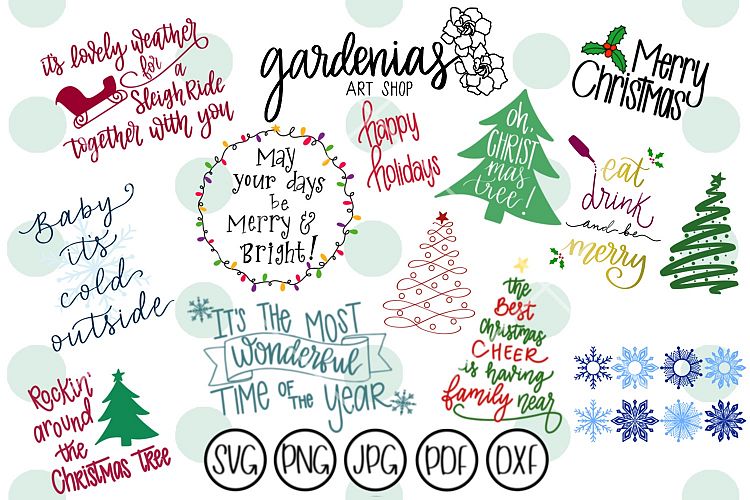 it's lovely weather
for
a
Sleigh Ride
together with you
gardenias
ART SHOP
Merry
Christmas
happy
holidays
oh,
CHRIST
mas
tree!
May
your days
be
Merry &
Bright!
eat
drink
and be
merry
Baby
it's
cold
outside
IT'S THE MOST
Wonderful
TIME OF THE YEAR
the
Best
Christmas
CHEER
is having
family near
Rockin'
around
the
CHRISTMAS TREE
SVG PNG JPG PDF DXF